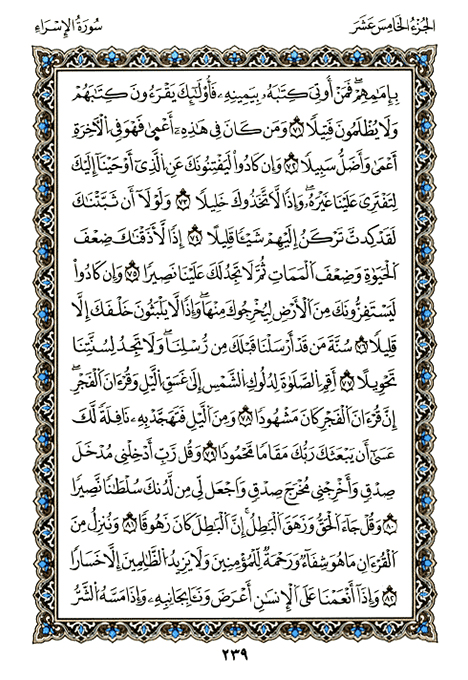 الجُزْءُ الخَامِسَ عَشَرَ
سُورَةُ الإِسْرَاءِ
بِإِمَٰمِهِمْۖ فَمَنْ أُوتِىَ كِتَٰبَهُۥ بِيَمِينِهِۦ فَأُو۟لَٰٓئِكَ يَقْرَءُونَ كِتَٰبَهُمْ
وَلَا يُظْلَمُونَ فَتِيلًا ۝٧١ وَمَن كَانَ فِى هَٰذِهِۦٓ أَعْمَىٰ فَهُوَ فِى ٱلْءَاخِرَةِ
أَعْمَىٰ وَأَضَلُّ سَبِيلًا ۝٧٢ وَإِن كَادُوا۟ لَيَفْتِنُونَكَ عَنِ ٱلَّذِىٓ أَوْحَيْنَآ إِلَيْكَ
لِتَفْتَرِىَ عَلَيْنَا غَيْرَهُۥۖ وَإِذًا لَّٱتَّخَذُوكَ خَلِيلًا ۝٧٣ وَلَوْلَآ أَن ثَبَّتْنَٰكَ
لَقَدْ كِدتَّ تَرْكَنُ إِلَيْهِمْ شَيْـًٔا قَلِيلًا ۝٧٤ إِذًا لَّأَذَقْنَٰكَ ضِعْفَ
ٱلْحَيَوٰةِ وَضِعْفَ ٱلْمَمَاتِ ثُمَّ لَا تَجِدُ لَكَ عَلَيْنَا نَصِيرًا ۝٧٥ وَإِن كَادُوا۟
لَيَسْتَفِزُّونَكَ مِنَ ٱلْأَرْضِ لِيُخْرِجُوكَ مِنْهَاۖ وَإِذًا لَّا يَلْبَثُونَ خِلَٰفَكَ إِلَّا
قَلِيلًا ۝٧٦ سُنَّةَ مَن قَدْ أَرْسَلْنَا قَبْلَكَ مِن رُّسُلِنَاۖ وَلَا تَجِدُ لِسُنَّتِنَا
تَحْوِيلًا ۝٧٧ أَقِمِ ٱلصَّلَوٰةَ لِدُلُوكِ ٱلشَّمْسِ إِلَىٰ غَسَقِ ٱلَّيْلِ وَقُرْءَانَ ٱلْفَجْرِۖ
إِنَّ قُرْءَانَ ٱلْفَجْرِ كَانَ مَشْهُودًا ۝٧٨ وَمِنَ ٱلَّيْلِ فَتَهَجَّدْ بِهِۦ نَافِلَةً لَّكَ
عَسَىٰٓ أَن يَبْعَثَكَ رَبُّكَ مَقَامًا مَّحْمُودًا ۝٧٩ وَقُل رَّبِّ أَدْخِلْنِى مُدْخَلَ
صِدْقٍ وَأَخْرِجْنِى مُخْرَجَ صِدْقٍ وَٱجْعَل لِّى مِن لَّدُنكَ سُلْطَٰنًا نَّصِيرًا
۝٨٠ وَقُلْ جَآءَ ٱلْحَقُّ وَزَهَقَ ٱلْبَٰطِلُۚ إِنَّ ٱلْبَٰطِلَ كَانَ زَهُوقًا ۝٨١ وَنُنَزِّلُ مِنَ
ٱلْقُرْءَانِ مَا هُوَ شِفَآءٌ وَرَحْمَةٌ لِّلْمُؤْمِنِينَ وَلَا يَزِيدُ ٱلظَّٰلِمِينَ إِلَّا خَسَارًا
۝٨٢ وَإِذَآ أَنْعَمْنَا عَلَى ٱلْإِنسَٰنِ أَعْرَضَ وَنَـَٔا بِجَانِبِهِۦ وَإِذَا مَسَّهُ ٱلشَّرُّ
٢٣٩